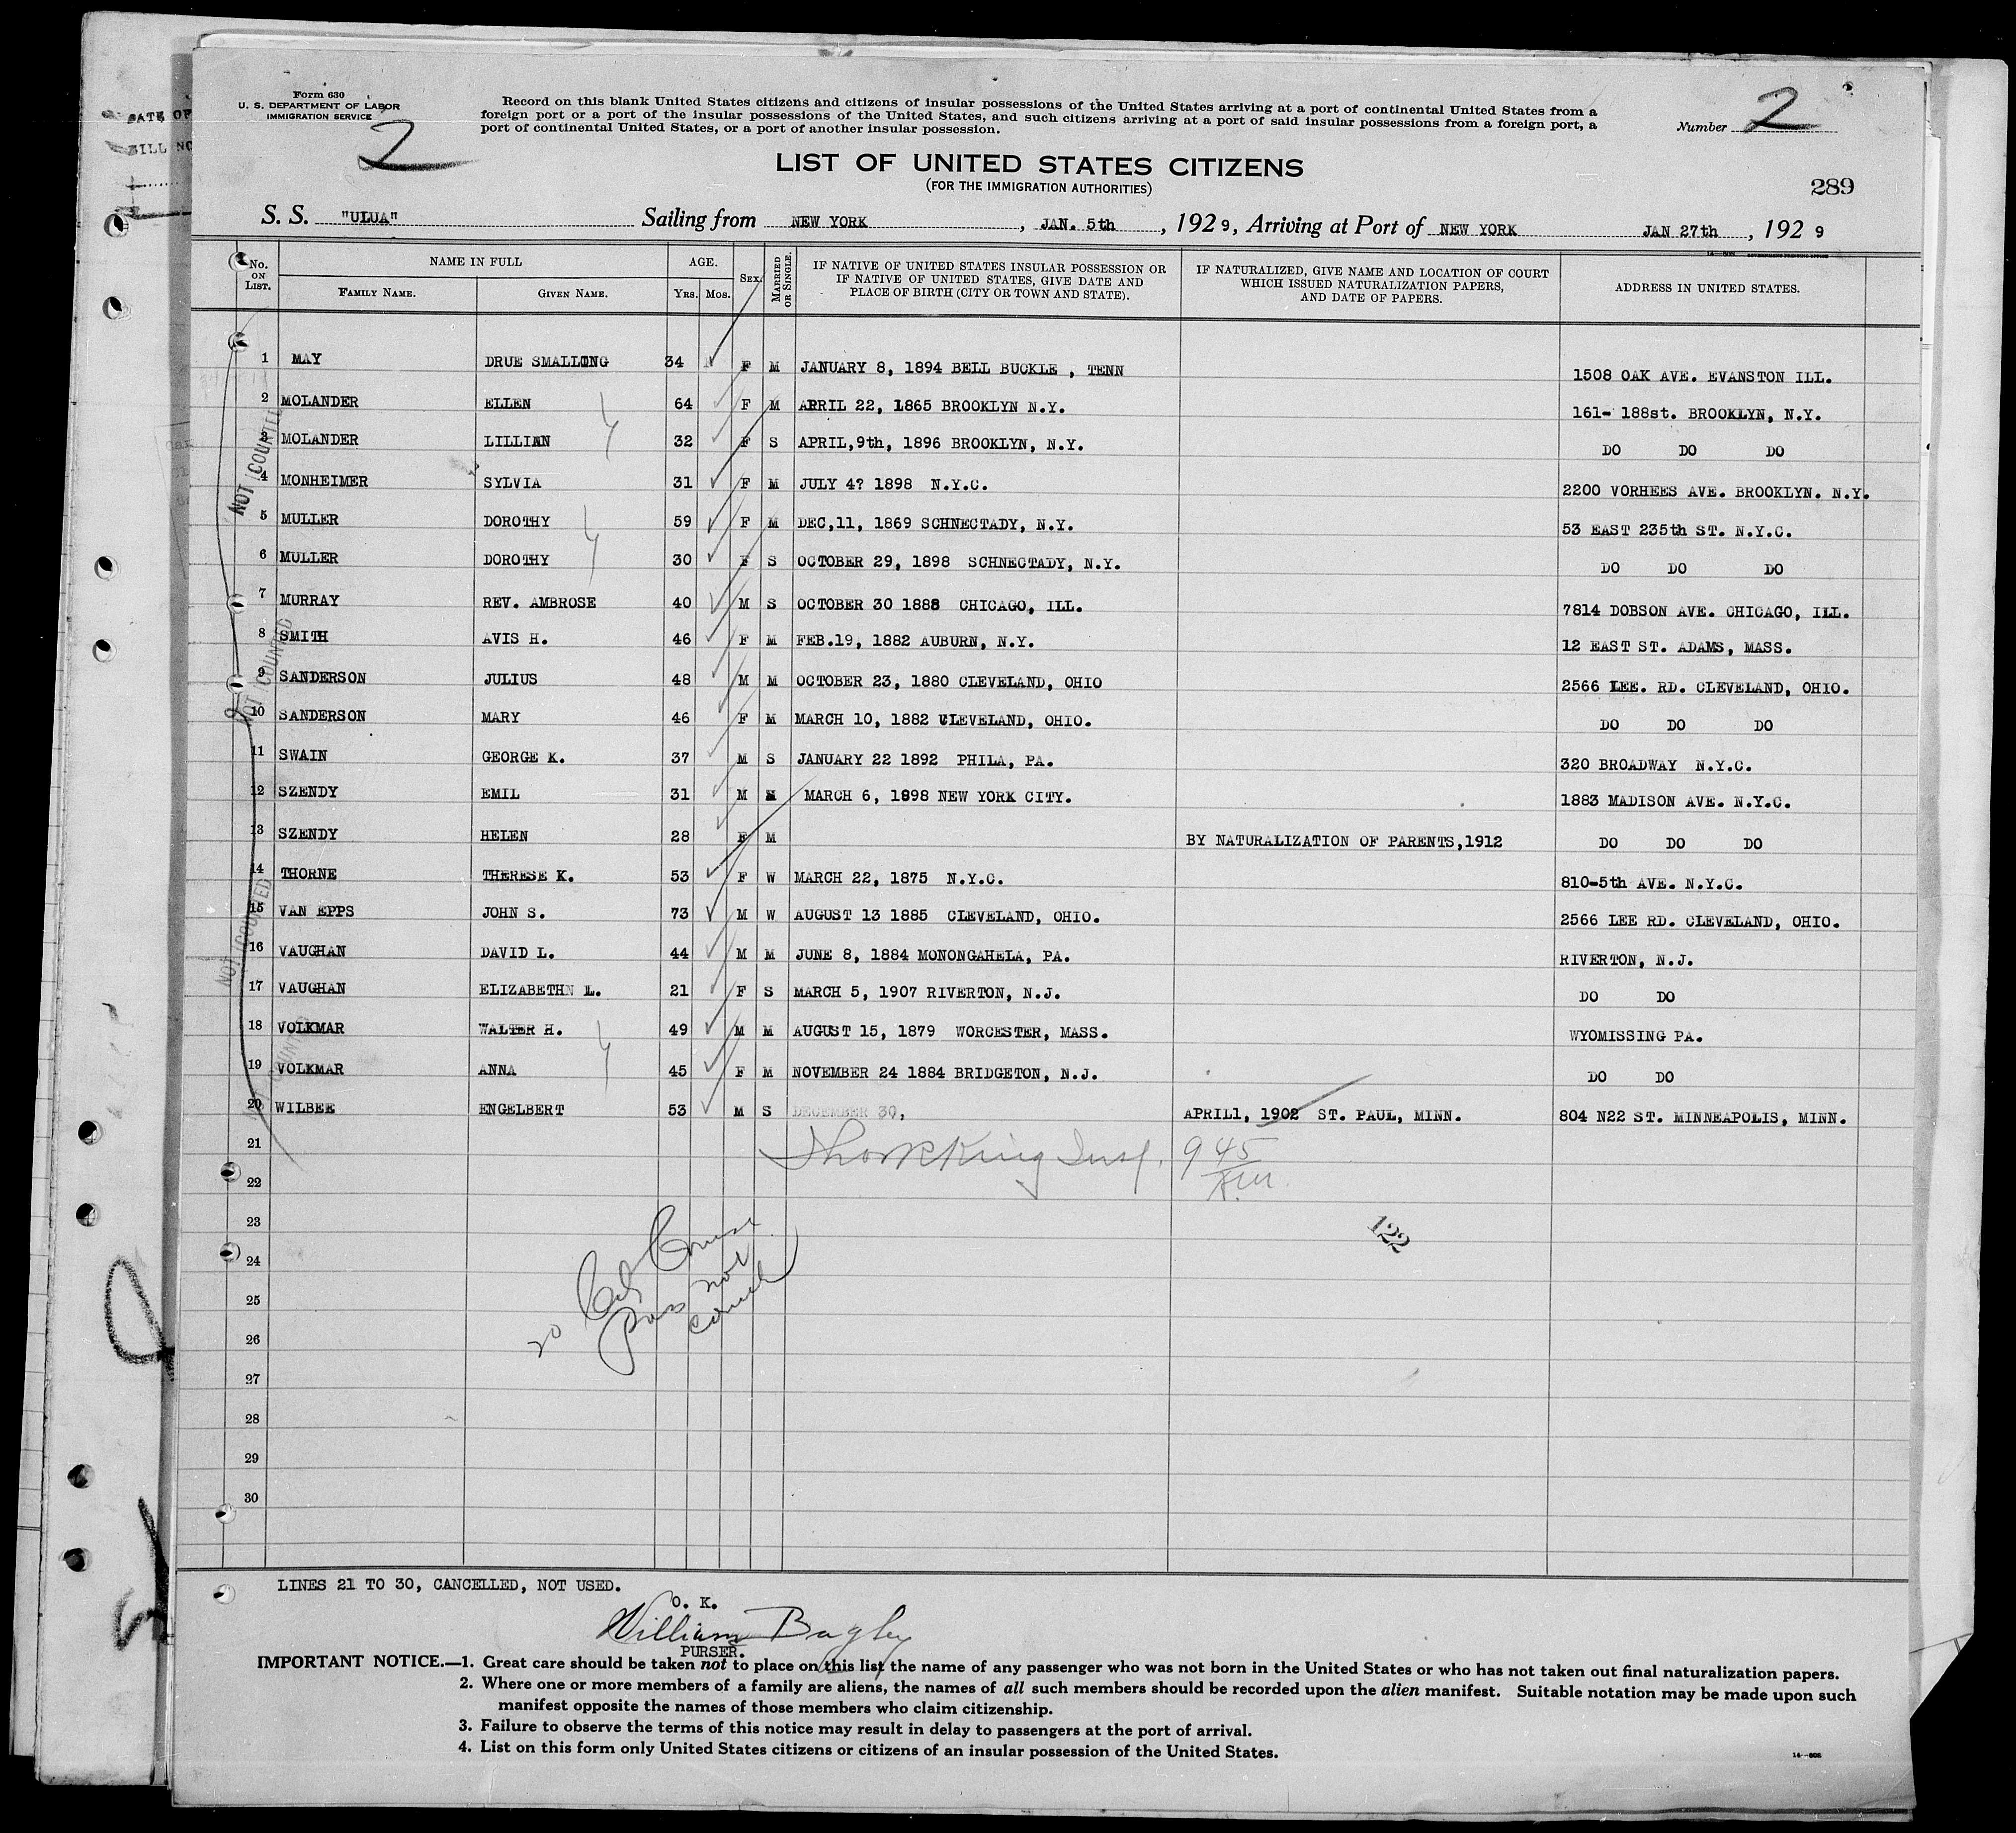 Form 630
U. S. DEPARTMENT OF LABOR
IMMIGRATION SERVICE
2
Record on this blank United States citizens and citizens of insular possessions of the United States arriving at a port of continental United States from a
foreign port or a port of the insular possessions of the United States, and such citizens arriving at a port of said insular possessions from a foreign port, a
port of continental United States, or a port of another insular possession.
Number 2
LIST OF UNITED STATES CITIZENS
(FOR THE IMMIGRATION AUTHORITIES)
289
S. S. "ULUA" Sailing from NEW YORK, JAN. 5th, 1929, Arriving at Port of NEW YORK JAN 27th, 1929
No. ON LIST. NAME IN FULL FAMILY NAME. GIVEN NAME. AGE. YRS. MOS. SEX. MARRIED OR SINGLE. IF NATIVE OF UNITED STATES INSULAR POSSESSION OR IF NATIVE OF UNITED STATES, GIVE DATE AND PLACE OF BIRTH (CITY OR TOWN AND STATE). IF NATURALIZED, GIVE NAME AND LOCATION OF COURT WHICH ISSUED NATURALIZATION PAPERS, AND DATE OF PAPERS. ADDRESS IN UNITED STATES.
1 MAY DRUE SMALLING 34 F M JANUARY 8, 1894 BELL BUCKLE , TENN 1508 OAK AVE. EVANSTON ILL.
2 MOLANDER ELLEN 64 F M APRIL 22, 1865 BROOKLYN N.Y. 161- 188st. BROOKLYN, N.Y.
3 MOLANDER LILLIAN 32 F S APRIL,9th, 1896 BROOKLYN, N.Y. DO DO DO
4 MONHEIMER SYLVIA 31 F M JULY 4? 1898 N.Y.C. 2200 VORHEES AVE. BROOKLYN. N.Y.
5 MULLER DOROTHY 59 F M DEC,11, 1869 SCHNECTADY, N.Y. 53 EAST 235th ST. N.Y.C.
6 MULLER DOROTHY 30 F S OCTOBER 29, 1898 SCHNECTADY, N.Y. DO DO DO
7 MURRAY REV. AMBROSE 40 M S OCTOBER 30 1888 CHICAGO, ILL. 7814 DOBSON AVE. CHICAGO, ILL.
8 SMITH AVIS H. 46 F M FEB.19, 1882 AUBURN, N.Y. 12 EAST ST. ADAMS, MASS.
9 SANDERSON JULIUS 48 M M OCTOBER 23, 1880 CLEVELAND, OHIO 2566 LEE. RD. CLEVELAND, OHIO.
10 SANDERSON MARY 46 F M MARCH 10, 1882 CLEVELAND, OHIO. DO DO DO
11 SWAIN GEORGE K. 37 M S JANUARY 22 1892 PHILA, PA. 320 BROADWAY N.Y.C.
12 SZENDY EMIL 31 M M MARCH 6, 1898 NEW YORK CITY. 1883 MADISON AVE. N.Y.C.
13 SZENDY HELEN 28 F M BY NATURALIZATION OF PARENTS,1912 DO DO DO
14 THORNE THERESE K. 53 F W MARCH 22, 1875 N.Y.C. 810-5th AVE. N.Y.C.
15 VAN EPPS JOHN S. 73 M W AUGUST 13 1885 CLEVELAND, OHIO. 2566 LEE RD. CLEVELAND, OHIO.
16 VAUGHAN DAVID L. 44 M M JUNE 8, 1884 MONONGAHELA, PA. RIVERTON, N.J.
17 VAUGHAN ELIZABETHN L. 21 F S MARCH 5, 1907 RIVERTON, N.J. DO DO
18 VOLKMAR WALTER H. 49 M M AUGUST 15, 1879 WORCESTER, MASS. WYOMISSING PA.
19 VOLKMAR ANNA 45 F M NOVEMBER 24 1884 BRIDGETON, N.J. DO DO
20 WILBEE ENGELBERT 53 M S DECEMBER 30, APRIL1, 1902 ST. PAUL, MINN. 804 N22 ST. MINNEAPOLIS, MINN.
NOT COUNTED
NOT COUNTED
NOT COUNTED
21
22
23
24
25
26
27
28
29
30
945
122
20
Pass not
LINES 21 TO 30, CANCELLED, NOT USED.
O. K.
William Bagley
PURSER.
IMPORTANT NOTICE.—1. Great care should be taken not to place on this list the name of any passenger who was not born in the United States or who has not taken out final naturalization papers.
2. Where one or more members of a family are aliens, the names of all such members should be recorded upon the alien manifest. Suitable notation may be made upon such
manifest opposite the names of those members who claim citizenship.
3. Failure to observe the terms of this notice may result in delay to passengers at the port of arrival.
4. List on this form only United States citizens or citizens of an insular possession of the United States.